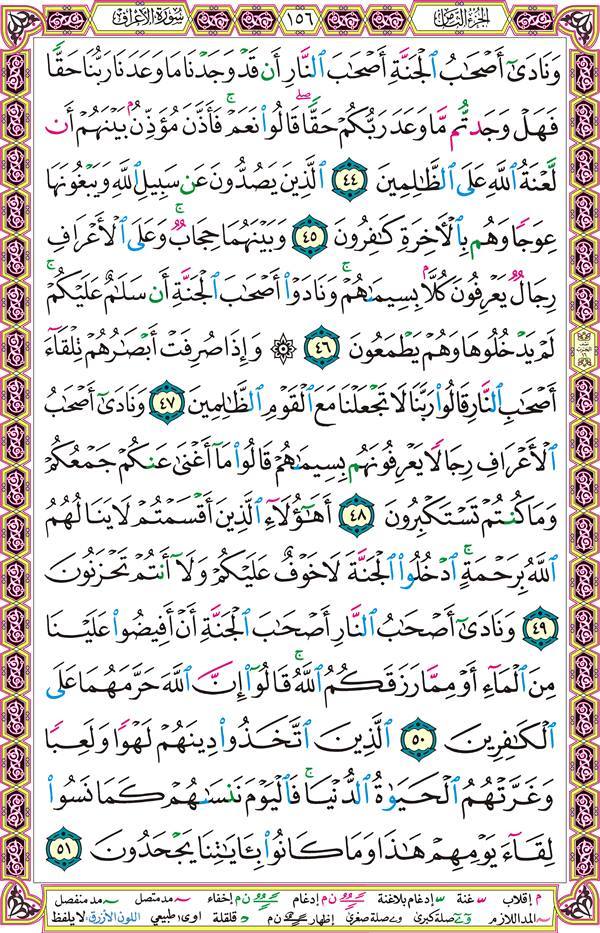 الجزء الثامن
١٥٦
سورة الأعراف
وَنَادَىٰٓ أَصْحَٰبُ ٱلْجَنَّةِ أَصْحَٰبَ ٱلنَّارِ أَن قَدْ وَجَدْنَا مَا وَعَدَنَا رَبُّنَا حَقًّا
فَهَلْ وَجَدتُّم مَّا وَعَدَ رَبُّكُمْ حَقًّا ۖ قَالُوا۟ نَعَمْ ۚ فَأَذَّنَ مُؤَذِّنٌۢ بَيْنَهُمْ أَن
لَّعْنَةُ ٱللَّهِ عَلَى ٱلظَّٰلِمِينَ ٤٤ ٱلَّذِينَ يَصُدُّونَ عَن سَبِيلِ ٱللَّهِ وَيَبْغُونَهَا
عِوَجًا وَهُم بِٱلْـَٔاخِرَةِ كَٰفِرُونَ ٤٥ وَبَيْنَهُمَا حِجَابٌ ۚ وَعَلَى ٱلْأَعْرَافِ
رِجَالٌ يَعْرِفُونَ كُلًّۢا بِسِيمَىٰهُمْ ۚ وَنَادَوْا۟ أَصْحَٰبَ ٱلْجَنَّةِ أَن سَلَٰمٌ عَلَيْكُمْ ۚ
لَمْ يَدْخُلُوهَا وَهُمْ يَطْمَعُونَ ٤٦ ۞ وَإِذَا صُرِفَتْ أَبْصَٰرُهُمْ تِلْقَآءَ
أَصْحَٰبِ ٱلنَّارِ قَالُوا۟ رَبَّنَا لَا تَجْعَلْنَا مَعَ ٱلْقَوْمِ ٱلظَّٰلِمِينَ ٤٧ وَنَادَىٰٓ أَصْحَٰبُ
ٱلْأَعْرَافِ رِجَالًا يَعْرِفُونَهُم بِسِيمَىٰهُمْ قَالُوا۟ مَآ أَغْنَىٰ عَنكُمْ جَمْعُكُمْ
وَمَا كُنتُمْ تَسْتَكْبِرُونَ ٤٨ أَهَٰٓؤُلَآءِ ٱلَّذِينَ أَقْسَمْتُمْ لَا يَنَالُهُمُ
ٱللَّهُ بِرَحْمَةٍ ۚ ٱدْخُلُوا۟ ٱلْجَنَّةَ لَا خَوْفٌ عَلَيْكُمْ وَلَآ أَنتُمْ تَحْزَنُونَ
٤٩ وَنَادَىٰٓ أَصْحَٰبُ ٱلنَّارِ أَصْحَٰبَ ٱلْجَنَّةِ أَنْ أَفِيضُوا۟ عَلَيْنَا
مِنَ ٱلْمَآءِ أَوْ مِمَّا رَزَقَكُمُ ٱللَّهُ ۚ قَالُوٓا۟ إِنَّ ٱللَّهَ حَرَّمَهُمَا عَلَى
ٱلْكَٰفِرِينَ ٥٠ ٱلَّذِينَ ٱتَّخَذُوا۟ دِينَهُمْ لَهْوًا وَلَعِبًا
وَغَرَّتْهُمُ ٱلْحَيَوٰةُ ٱلدُّنْيَا ۚ فَٱلْيَوْمَ نَنسَىٰهُمْ كَمَا نَسُوا۟
لِقَآءَ يَوْمِهِمْ هَٰذَا وَمَا كَانُوا۟ بِـَٔايَٰتِنَا يَجْحَدُونَ ٥١
م إقلاب غنة إدغام بلاغنة ن م إدغام ن م إخفاء مد متصل مد منفصل
المد اللازم صلة كبرى صلة صغرى إظهار ن م قلقلة اوى طبيعي اللون الأزرق: لا يلفظ